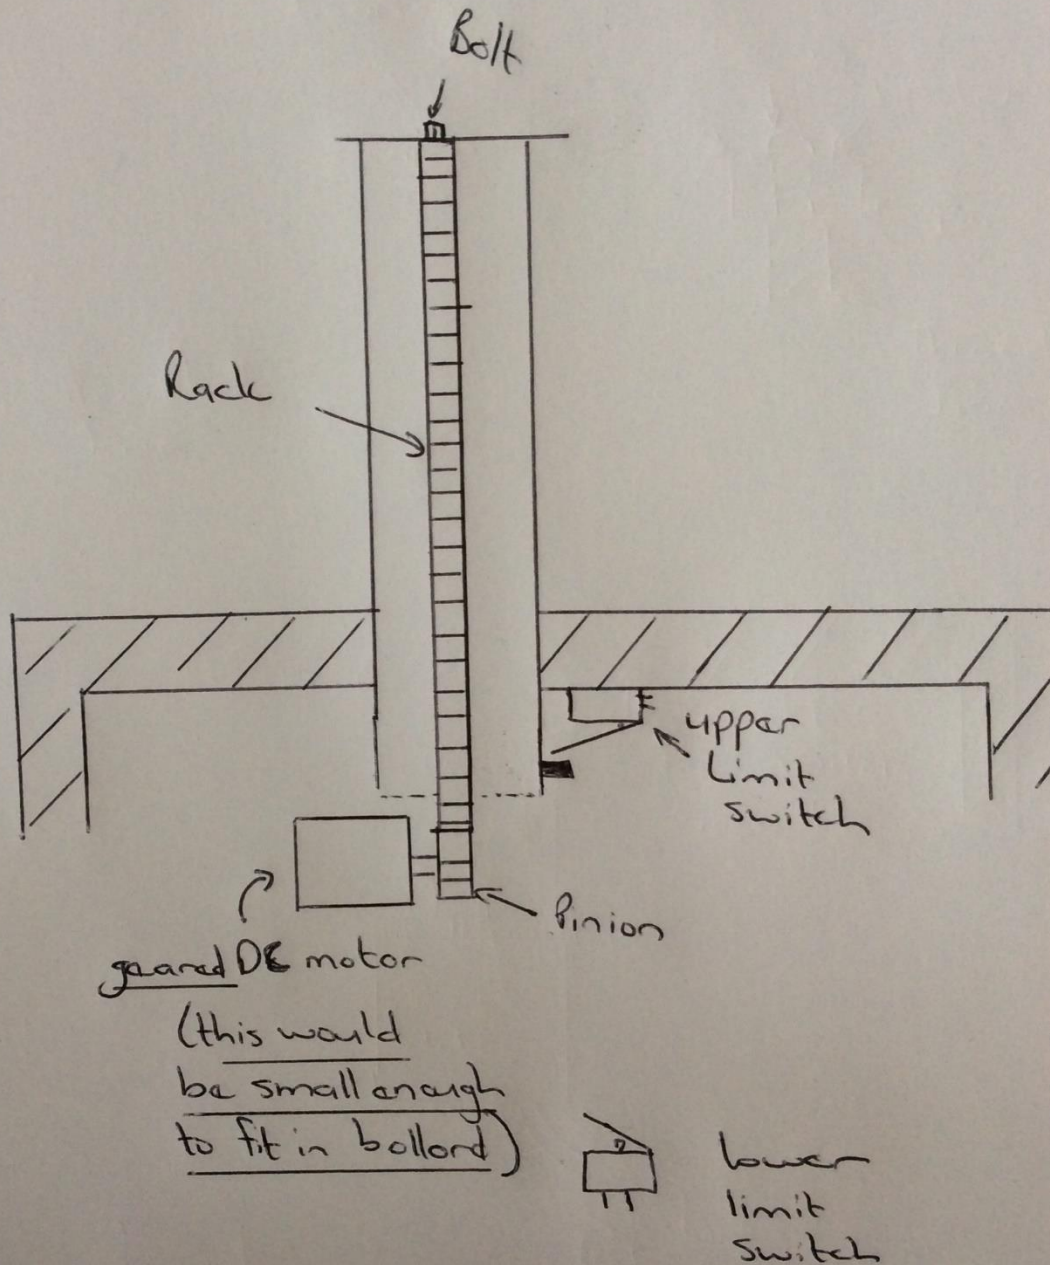 Bolt
Rack
upper
Limit
switch
Pinion
geared DC motor
(this would
be small enough
to fit in bollord)
lower
limit
switch